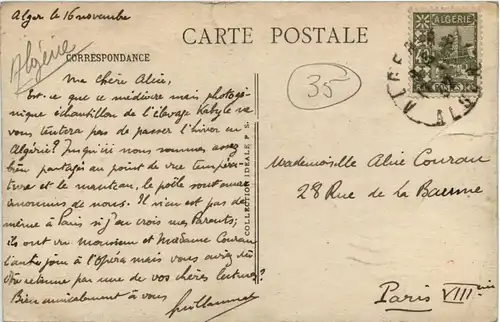 Alger le 16 novembre
Algérie
CARTE POSTALE
CORRESPONDANCE
ALGÉRIE
35
Ma chère Alice,
Est-ce que ce médiocre mais photogé-
nique échantillon de l'élevage Kabyle ne
vous tentera pas de passer l'hiver en
Algérie? Jusqu'ici nous sommes assez
bien partagés au point de vue tempéra-
ture et le manteau, le poêle sont
de nous. Il n'en est pas de
même à Paris si j'en crois mes Parents;
ils ont vu Monsieur et Madame Courau
l'autre jour à l'Opéra mais vous aviez dû
être retenue par une de vos chères lectures?
Bien amicalement à vous
COLLECTION IDÉALE P. S.
Mademoiselle Alice Courau
28 Rue de la Baume
Paris VIII